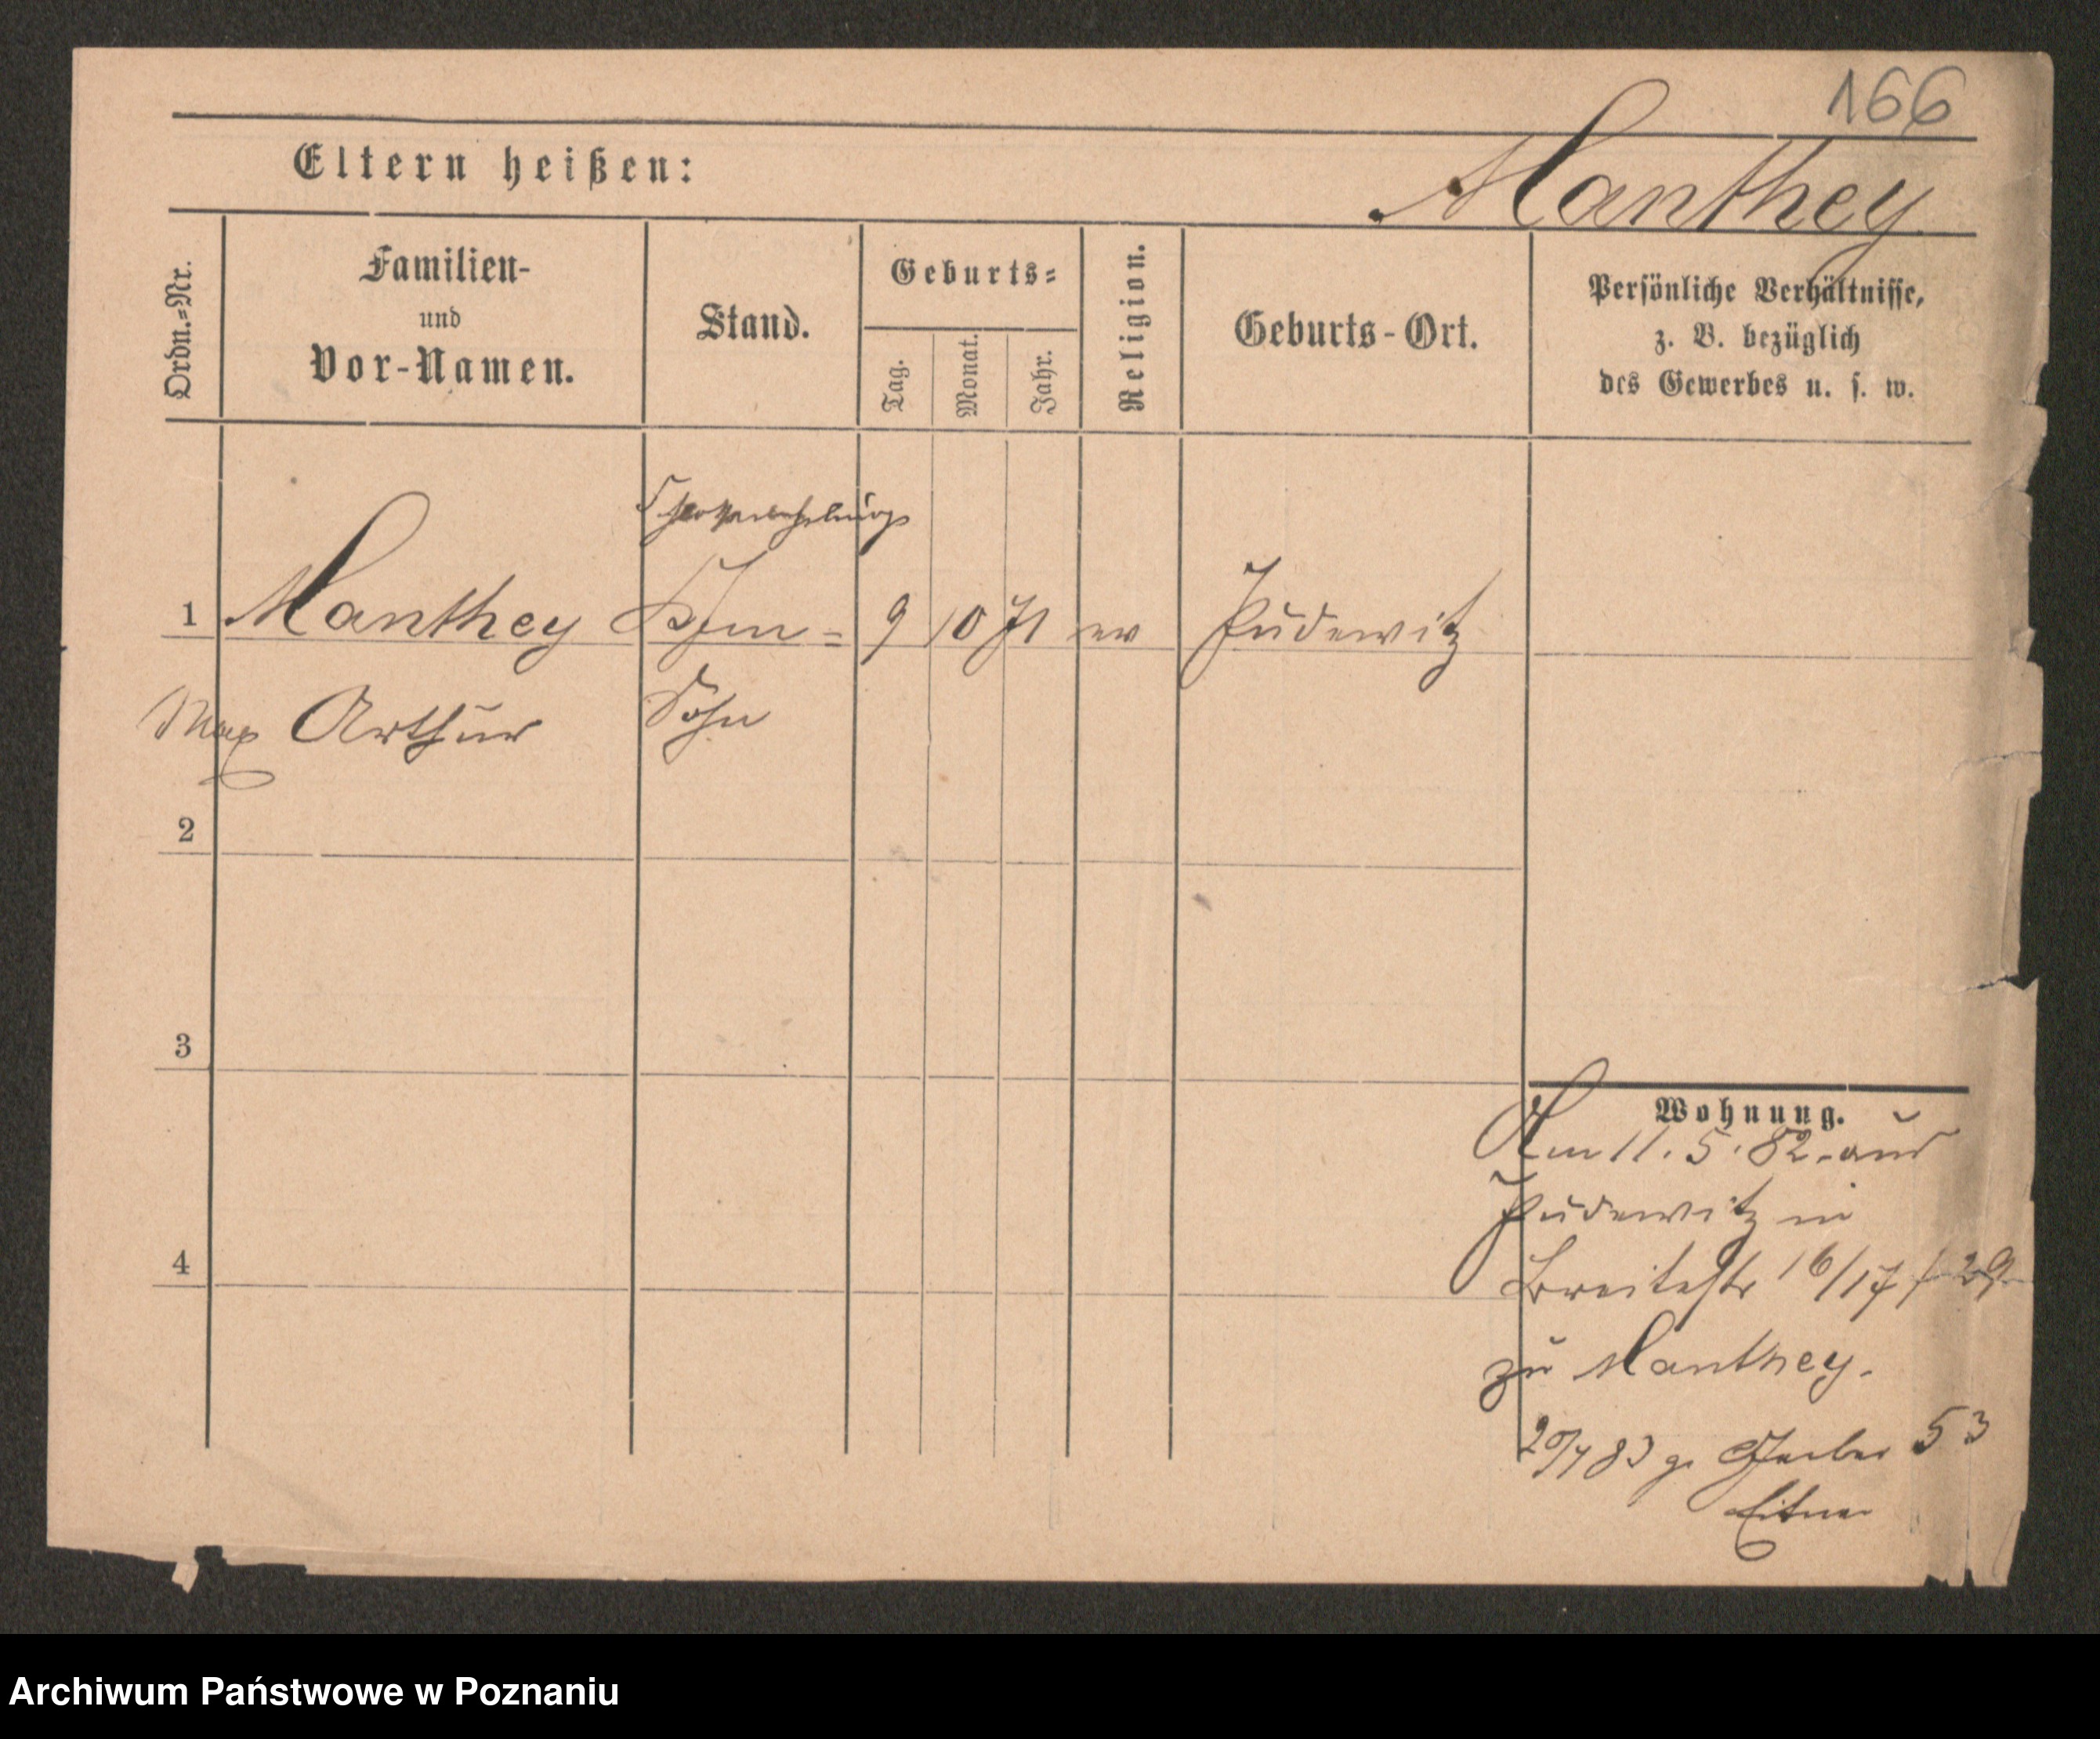 166
Eltern heißen:
Manthey
Ordn.=Nr.
Familien-
und
Vor-Namen.
Stand.
Geburts=
Tag.
Monat.
Jahr.
Religion.
Geburts-Ort.
Persönliche Verhältnisse,
z. B. bezüglich
des Gewerbes u. s. w.
1 Manthey Kfm= 9 10 71 ev Pudewitz
Max Arthur Sohn
2
3
4
Wohnung.
Am 11. 5. 82. aus
Pudewitz in
Breitestr 16/17 / 29
zu Manthey.
83 Gerber 53